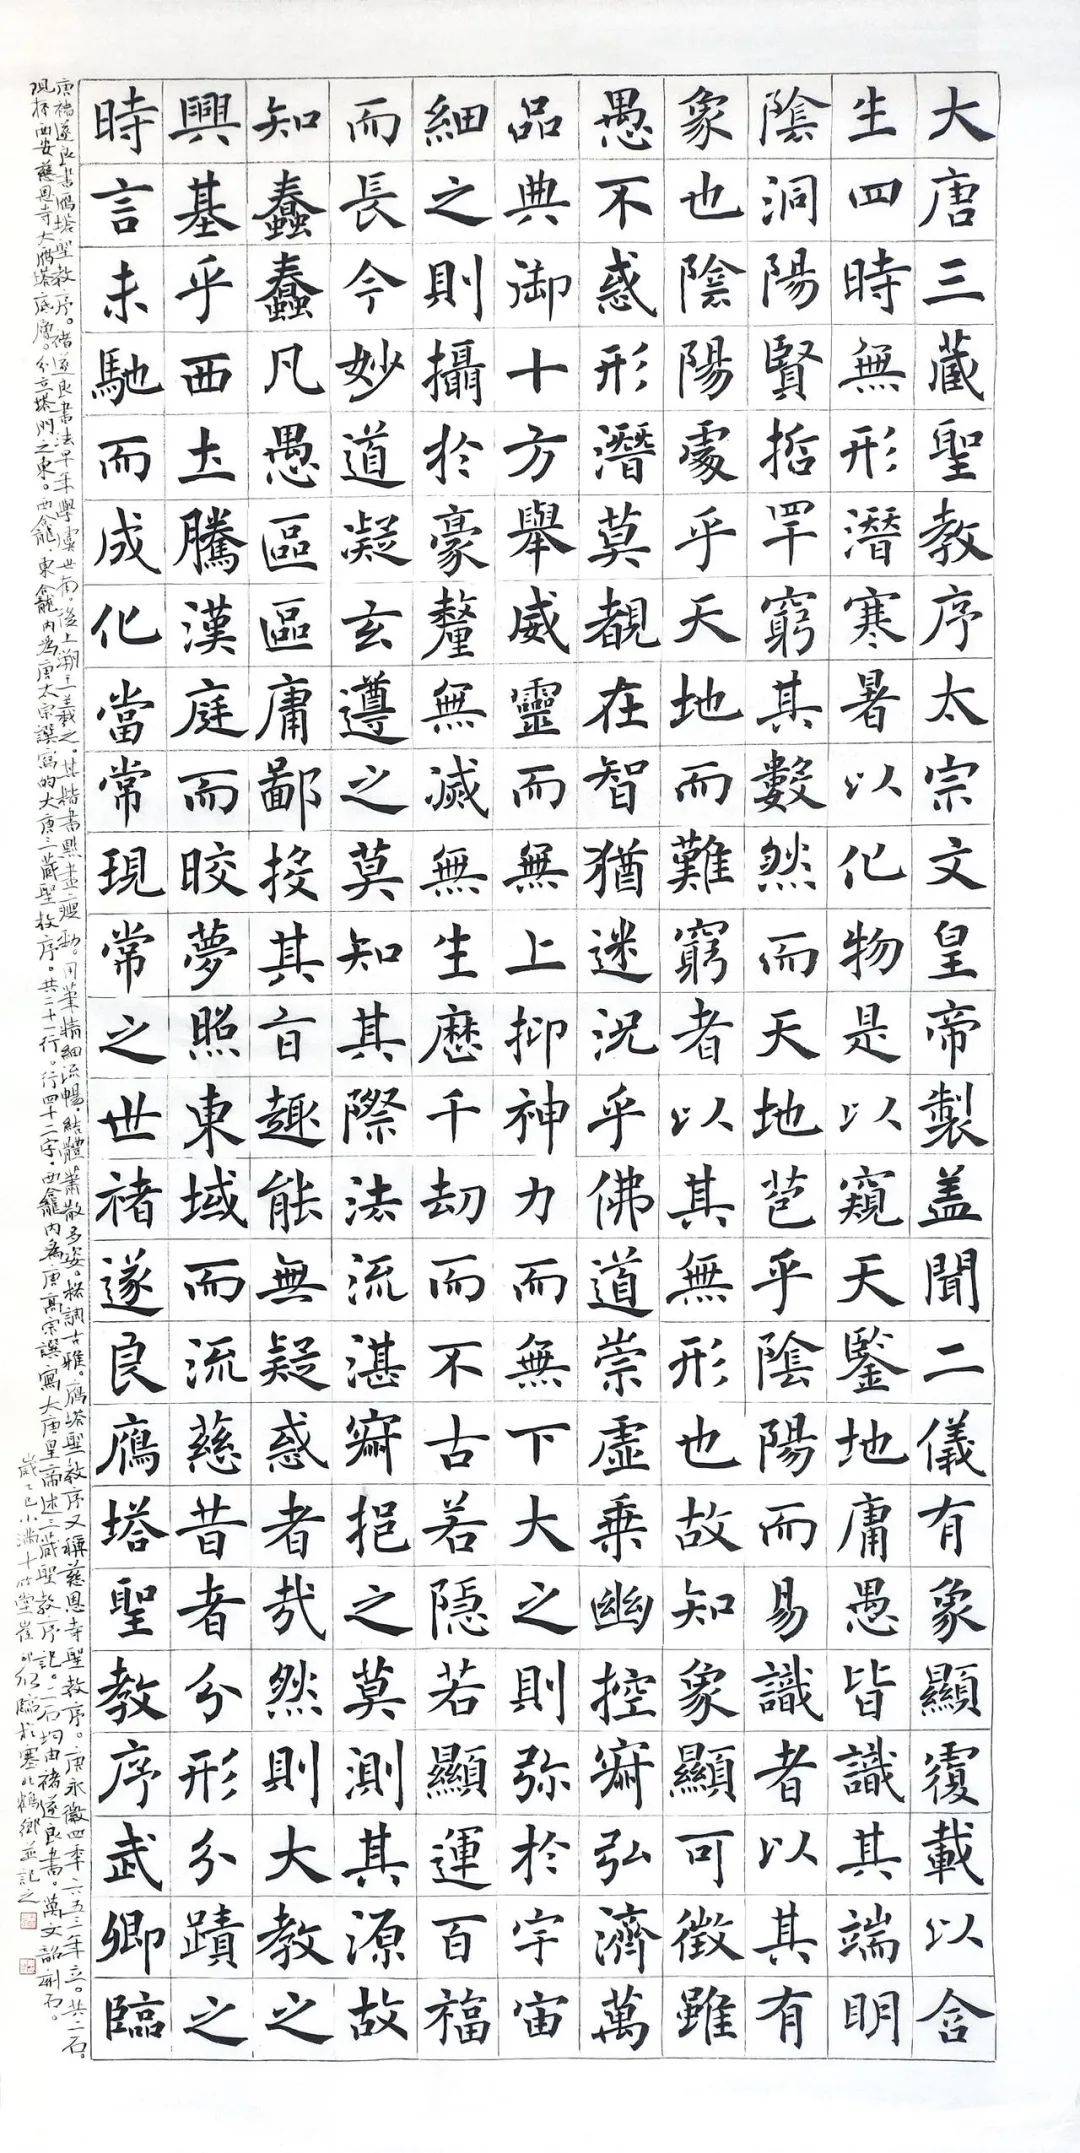 大唐三藏聖教序太宗文皇帝製盖聞二儀有象顯覆載以含
生四時無形潛寒暑以化物是以窺天鑒地庸愚皆識其端明
陰洞陽賢哲罕窮其數然而天地苞乎陰陽而易識者以其有
象也陰陽處乎天地而難窮者以其無形也故知象顯可徵雖
愚不惑形潛莫覩在智猶迷況乎佛道崇虛乗幽控寂弘濟萬
品典御十方舉威靈而無上抑神力而無下大之則弥於宇宙
細之則攝於豪釐無滅無生歷千劫而不古若隱若顯運百福
而長今妙道凝玄遵之莫知其際法流湛寂挹之莫測其源故
知蠢蠢凡愚區區庸鄙投其旨趣能無疑惑者哉然則大教之
興基乎西土騰漢庭而皎夢照東域而流慈昔者分形分蹟之
時言未馳而成化當常現常之世褚遂良鴈塔聖教序武卿臨
唐褚遂良書鴈塔聖教序。褚遂良書法早年學虞世南。後上溯王羲之。其楷書點畫瘦勁。用筆精細流暢。結體蕭散多姿。格調古雅。鴈塔聖教序又稱慈恩寺聖教序。唐永徽四年六五三年立。共二石。
現存西安慈恩寺大鴈塔底層。分立塔門之東。西龕。東龕內為唐太宗譔寫的大唐三藏聖教序。共二十一行。行四十二字。西龕內為唐高宗譔寫大唐皇帝述三藏聖教序記。二石均由褚遂良書。萬文韶刻石。
歲乙巳小滿十竹堂崔臨於塞北鶴鄉並記之